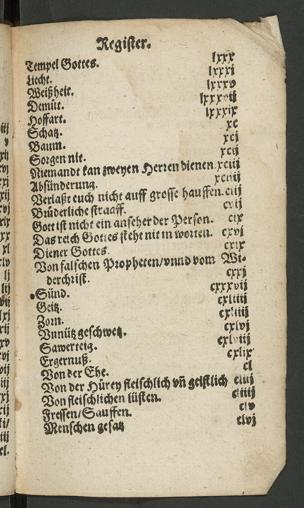 Register.
Tempel Gottes. lxxx
Liecht. lxxxj
Weißheit. lxxxv
Demüt. lxxxvij
Hoffart. lxxxix
Schatz. xc
Baum. xcj
Sorgen nit. xcij
Niemandt kan zweyen Herren dienen. xciij
Absünderung. xcvij
Verlaßt euch nicht auff grosse hauffen. ciij
Brüderliche straaff. cvij
Gott ist nicht ein anseher der Person. cix
Das reich Gottes steht nit in worten. cxvj
Diener Gottes. cxix
Von falschen Propheten/vnnd vom Wi-
derchrist. cxxj
Sünd. cxxxvij
Geitz. cxliiij
Zorn. cxliiij
Vnnütz geschwetz. cxlvj
Sawerteig. cxlviij
Ergernuß. cxlix
Von der Ehe. cl
Von der Hürey fleischlich vñ geistlich clvij
Von fleischlichen lüsten. cliiij
Fressen/Sauffen. clv
Menschen gesatz clvj